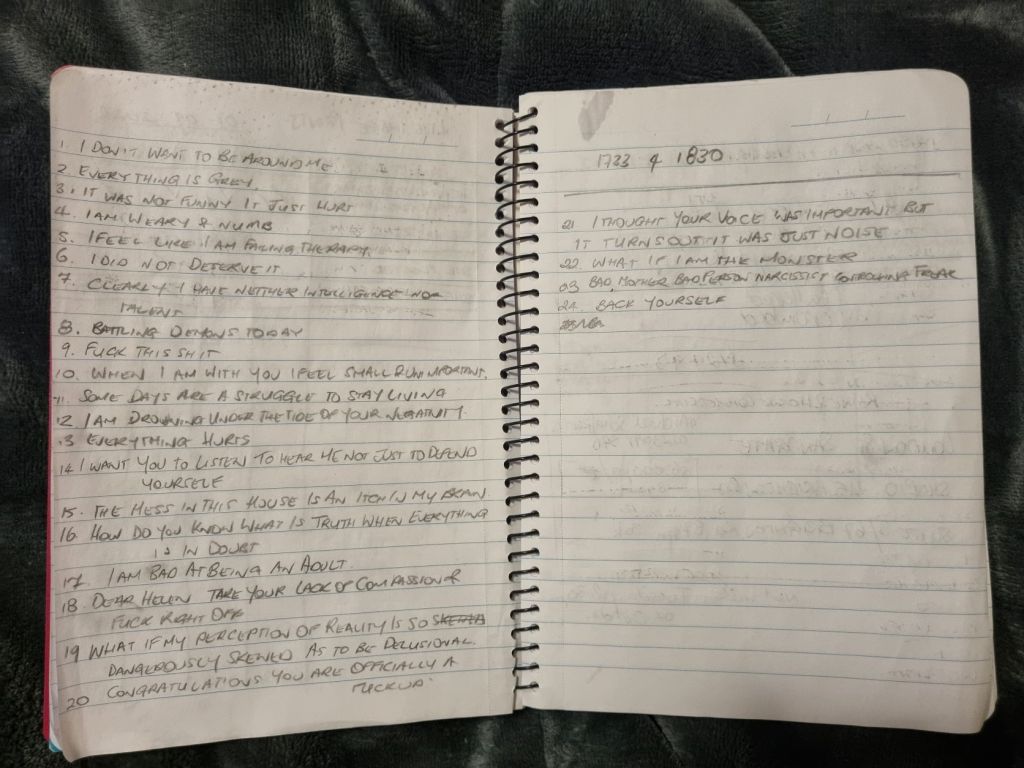 1. I DON'T WANT TO BE AROUND ME.
2. EVERYTHING IS GREY.
3. IT WAS NOT FUNNY IT JUST HURT
4. I AM WEARY & NUMB
5. I FEEL LIKE I AM FAILING THERAPY.
6. I DID NOT DESERVE IT
7. CLEARLY I HAVE NEITHER INTELLIGENCE NOR
TALENT
8. BATTLING DEMONS TODAY
9. FUCK THIS SHIT
10. WHEN I AM WITH YOU I FEEL SMALL & UNIMPORTANT.
11. SOME DAYS ARE A STRUGGLE TO STAY LIVING
12 I AM DROWNING UNDER THE TIDE OF YOUR NEGATIVITY.
13 EVERYTHING HURTS
14 I WANT YOU TO LISTEN TO HEAR ME NOT JUST TO DEFEND
YOURSELF
15. THE MESS IN THIS HOUSE IS AN ITCH IN MY BRAIN
16 HOW DO YOU KNOW WHAT IS TRUTH WHEN EVERYTHING
IS IN DOUBT
17. I AM BAD AT BEING AN ADULT.
18. DEAR HELEN TAKE YOUR LACK OF COMPASSION &
FUCK RIGHT OFF
19 WHAT IF MY PERCEPTION OF REALITY IS SO
DANGEROUSLY SKEWED AS TO BE DELUSIONAL.
20 CONGRATULATIONS YOU ARE OFFICIALLY A
FUCKUP.
1733 & 1830
21. I THOUGHT YOUR VOICE WAS IMPORTANT BUT
IT TURNS OUT IT WAS JUST NOISE
22. WHAT IF I AM THE MONSTER
23 BAD MOTHER BAD PERSON NARCISSIST CONTROLLING FREAK
24. BACK YOURSELF